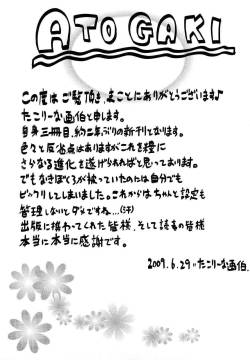 ATOGAKI
この度は ご覧頂き、まことにありがとうございます♪
たこりーな画伯と申します。
自身三冊目、約二年ぶりの新刊となります。
色々と反省点はありますがこれを糧に
さらなる進化を遂げられればと思っております。
でもなきぼくろが被っていたのには自分でも
ビックリしてしまいました。これからはちゃんと設定も
管理しないとダメですね…(汗)
出版に携わってくれた皆様、そして読者の皆様
本当に本当に感謝です。
2009.6.29 たこりーな画伯.